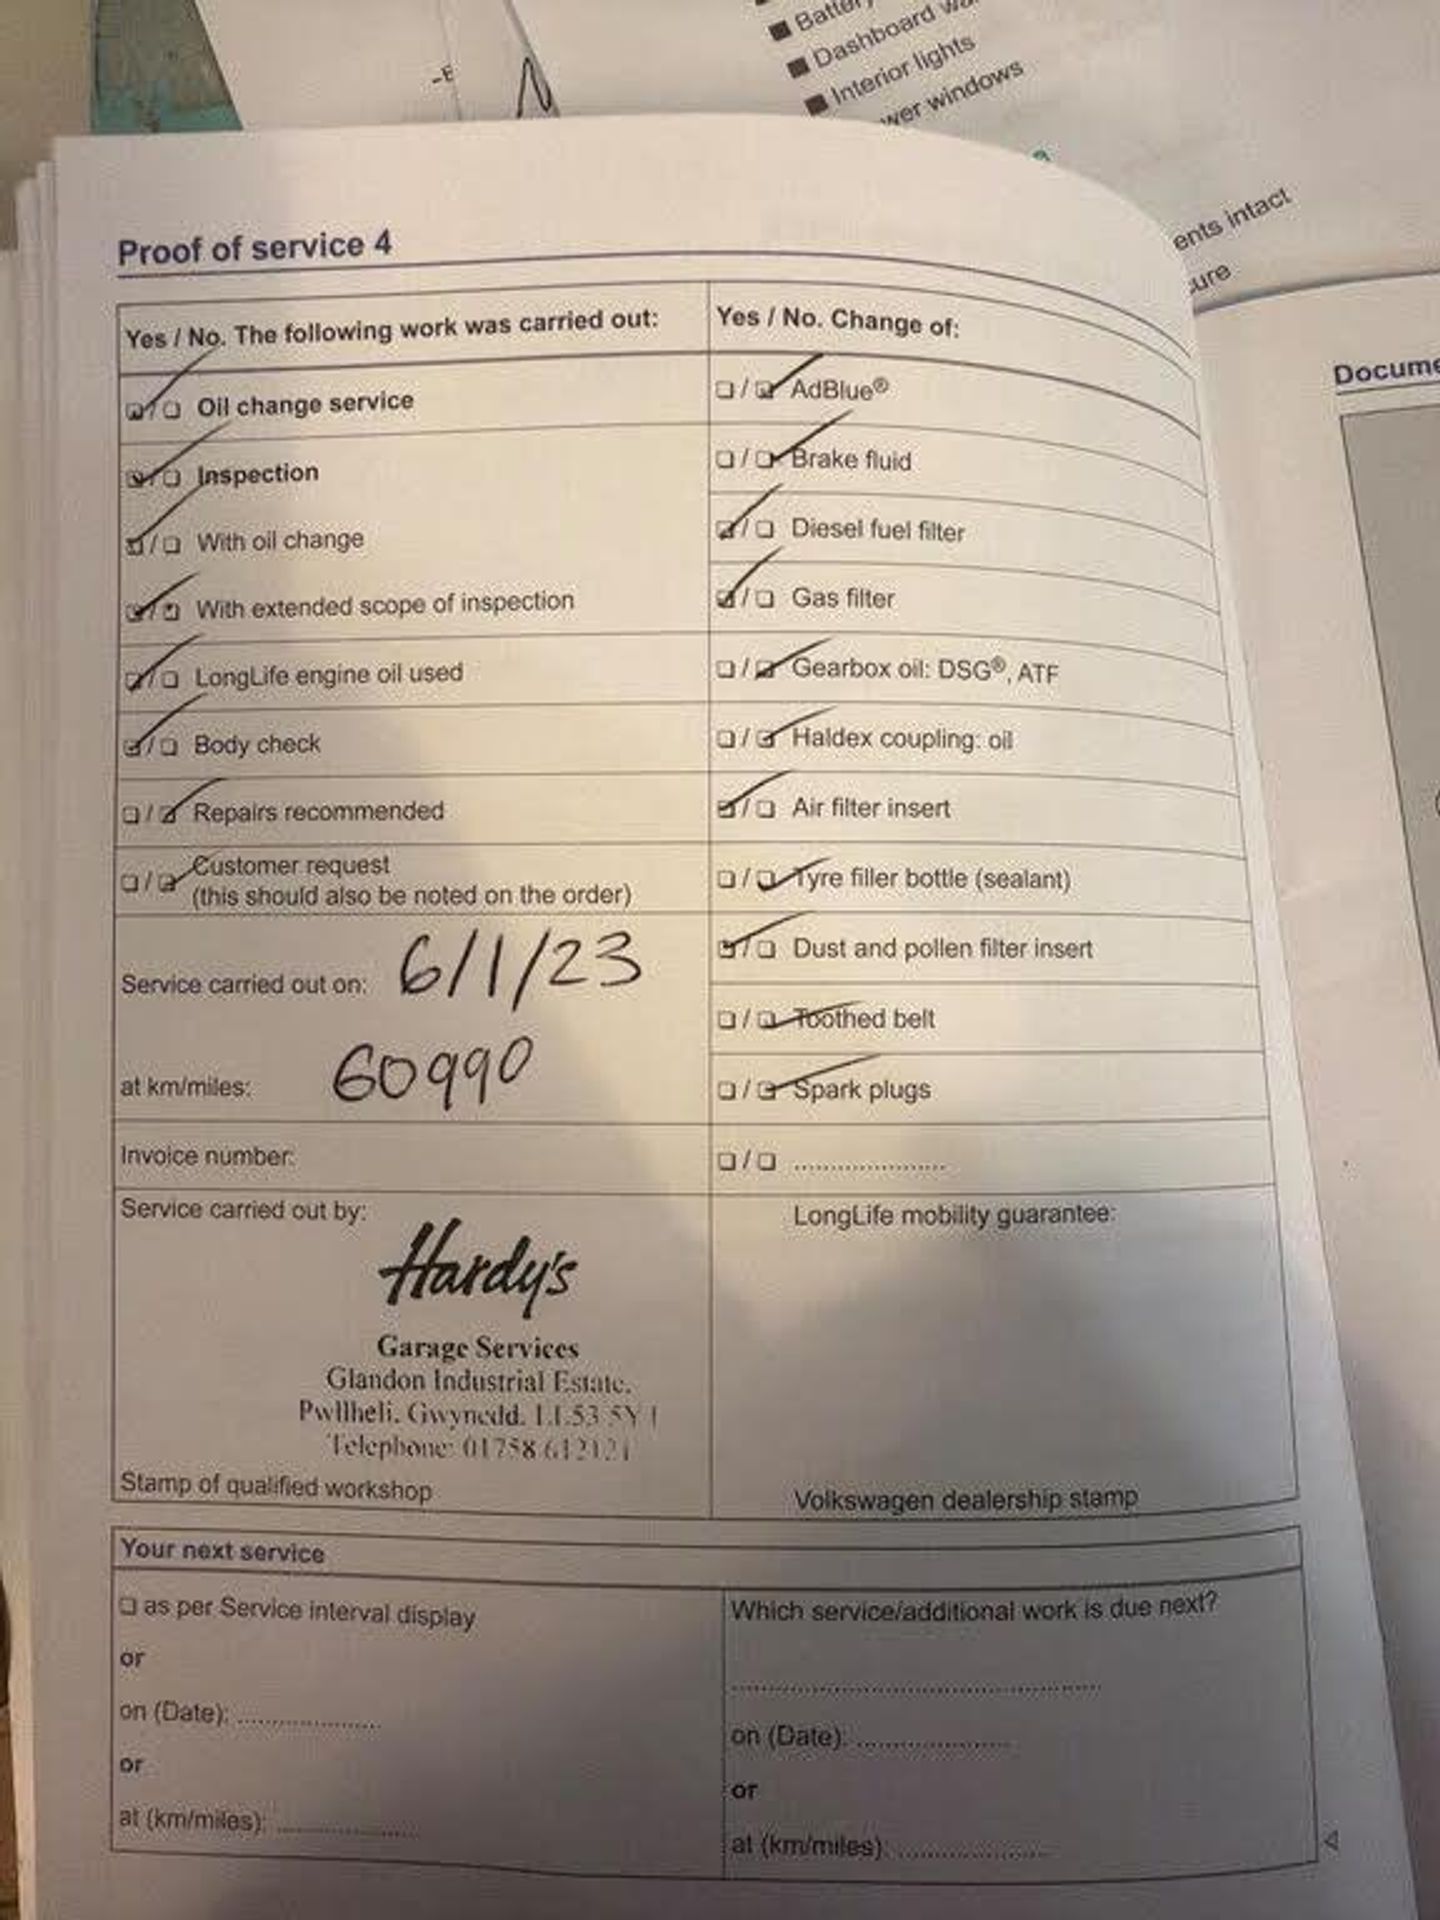 Battery
Dashboard wa
Interior lights
wer windows
ents intact
ure
Docume
Proof of service 4
Yes / No. The following work was carried out:
☑/☐ Oil change service
☑/☐ Inspection
☑/☐ With oil change
☑/☐ With extended scope of inspection
☑/☐ LongLife engine oil used
☑/☐ Body check
☐/☑ Repairs recommended
☐/☑ Customer request
(this should also be noted on the order)
Service carried out on: 6/1/23
at km/miles: 60990
Invoice number:
Service carried out by:
Hardy's
Garage Services
Glandon Industrial Estate.
Pwllheli. Gwynedd. LL53 5Y
Telephone: 01758 612121
Stamp of qualified workshop
Yes / No. Change of:
☐/☑ AdBlue®
☐/☑ Brake fluid
☑/☐ Diesel fuel filter
☑/☐ Gas filter
☐/☑ Gearbox oil: DSG®, ATF
☐/☑ Haldex coupling: oil
☑/☐ Air filter insert
☐/☑ Tyre filler bottle (sealant)
☑/☐ Dust and pollen filter insert
☐/☑ Toothed belt
☐/☑ Spark plugs
☐/☐ ......................
LongLife mobility guarantee:
Volkswagen dealership stamp
Your next service
☐ as per Service interval display
or
on (Date): ....................
or
at (km/miles): ....................
Which service/additional work is due next?
..................................................
on (Date): ....................
or
at (km/miles): ....................